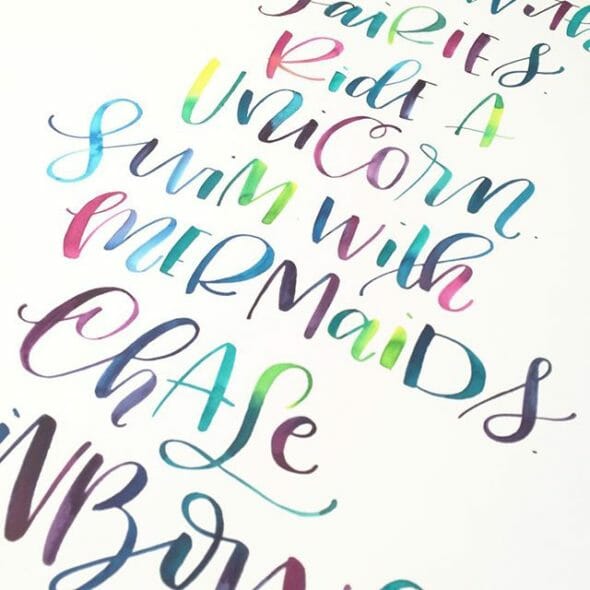 with
FaiRiEs.
RidE A
UNiCoRn.
Swim with
MERMaiDS.
ChASe
iNBows